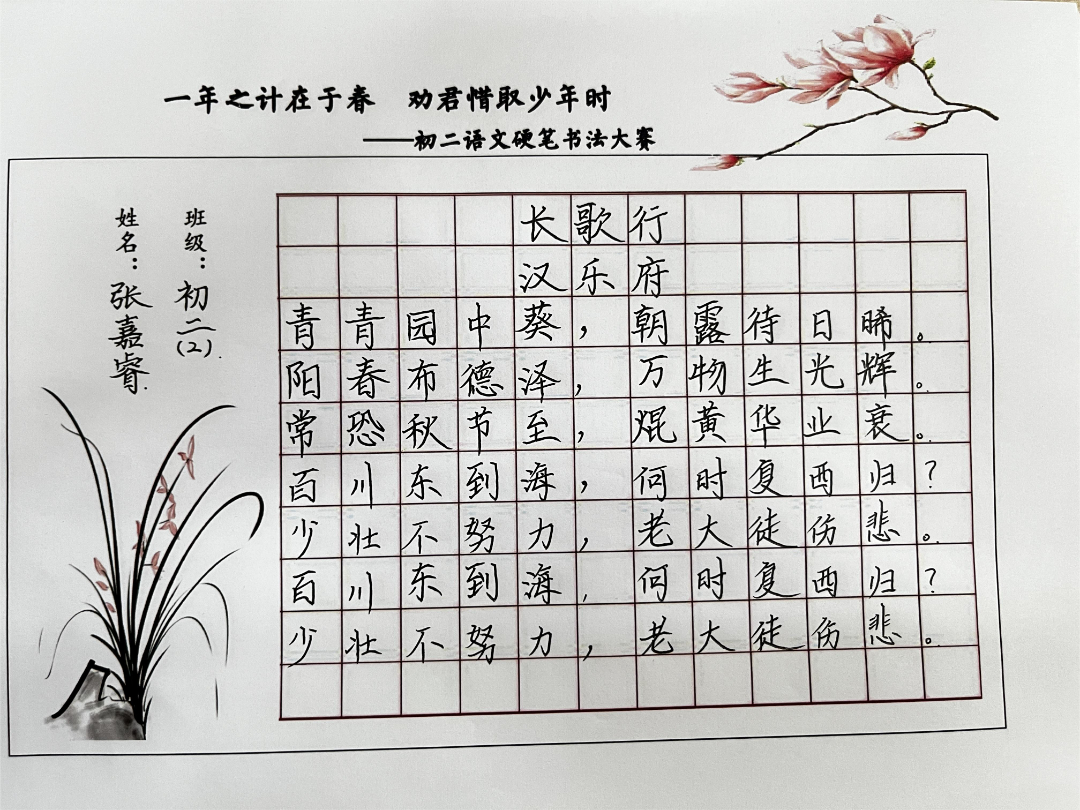 一年之计在于春 劝君惜取少年时
——初二语文硬笔书法大赛
班级：初二（2）.
姓名：张嘉睿.
长歌行
汉乐府
青青园中葵，朝露待日晞。
阳春布德泽，万物生光辉。
常恐秋节至，焜黄华业衰。
百川东到海，何时复西归？
少壮不努力，老大徒伤悲。
百川东到海，何时复西归？
少壮不努力，老大徒伤悲。